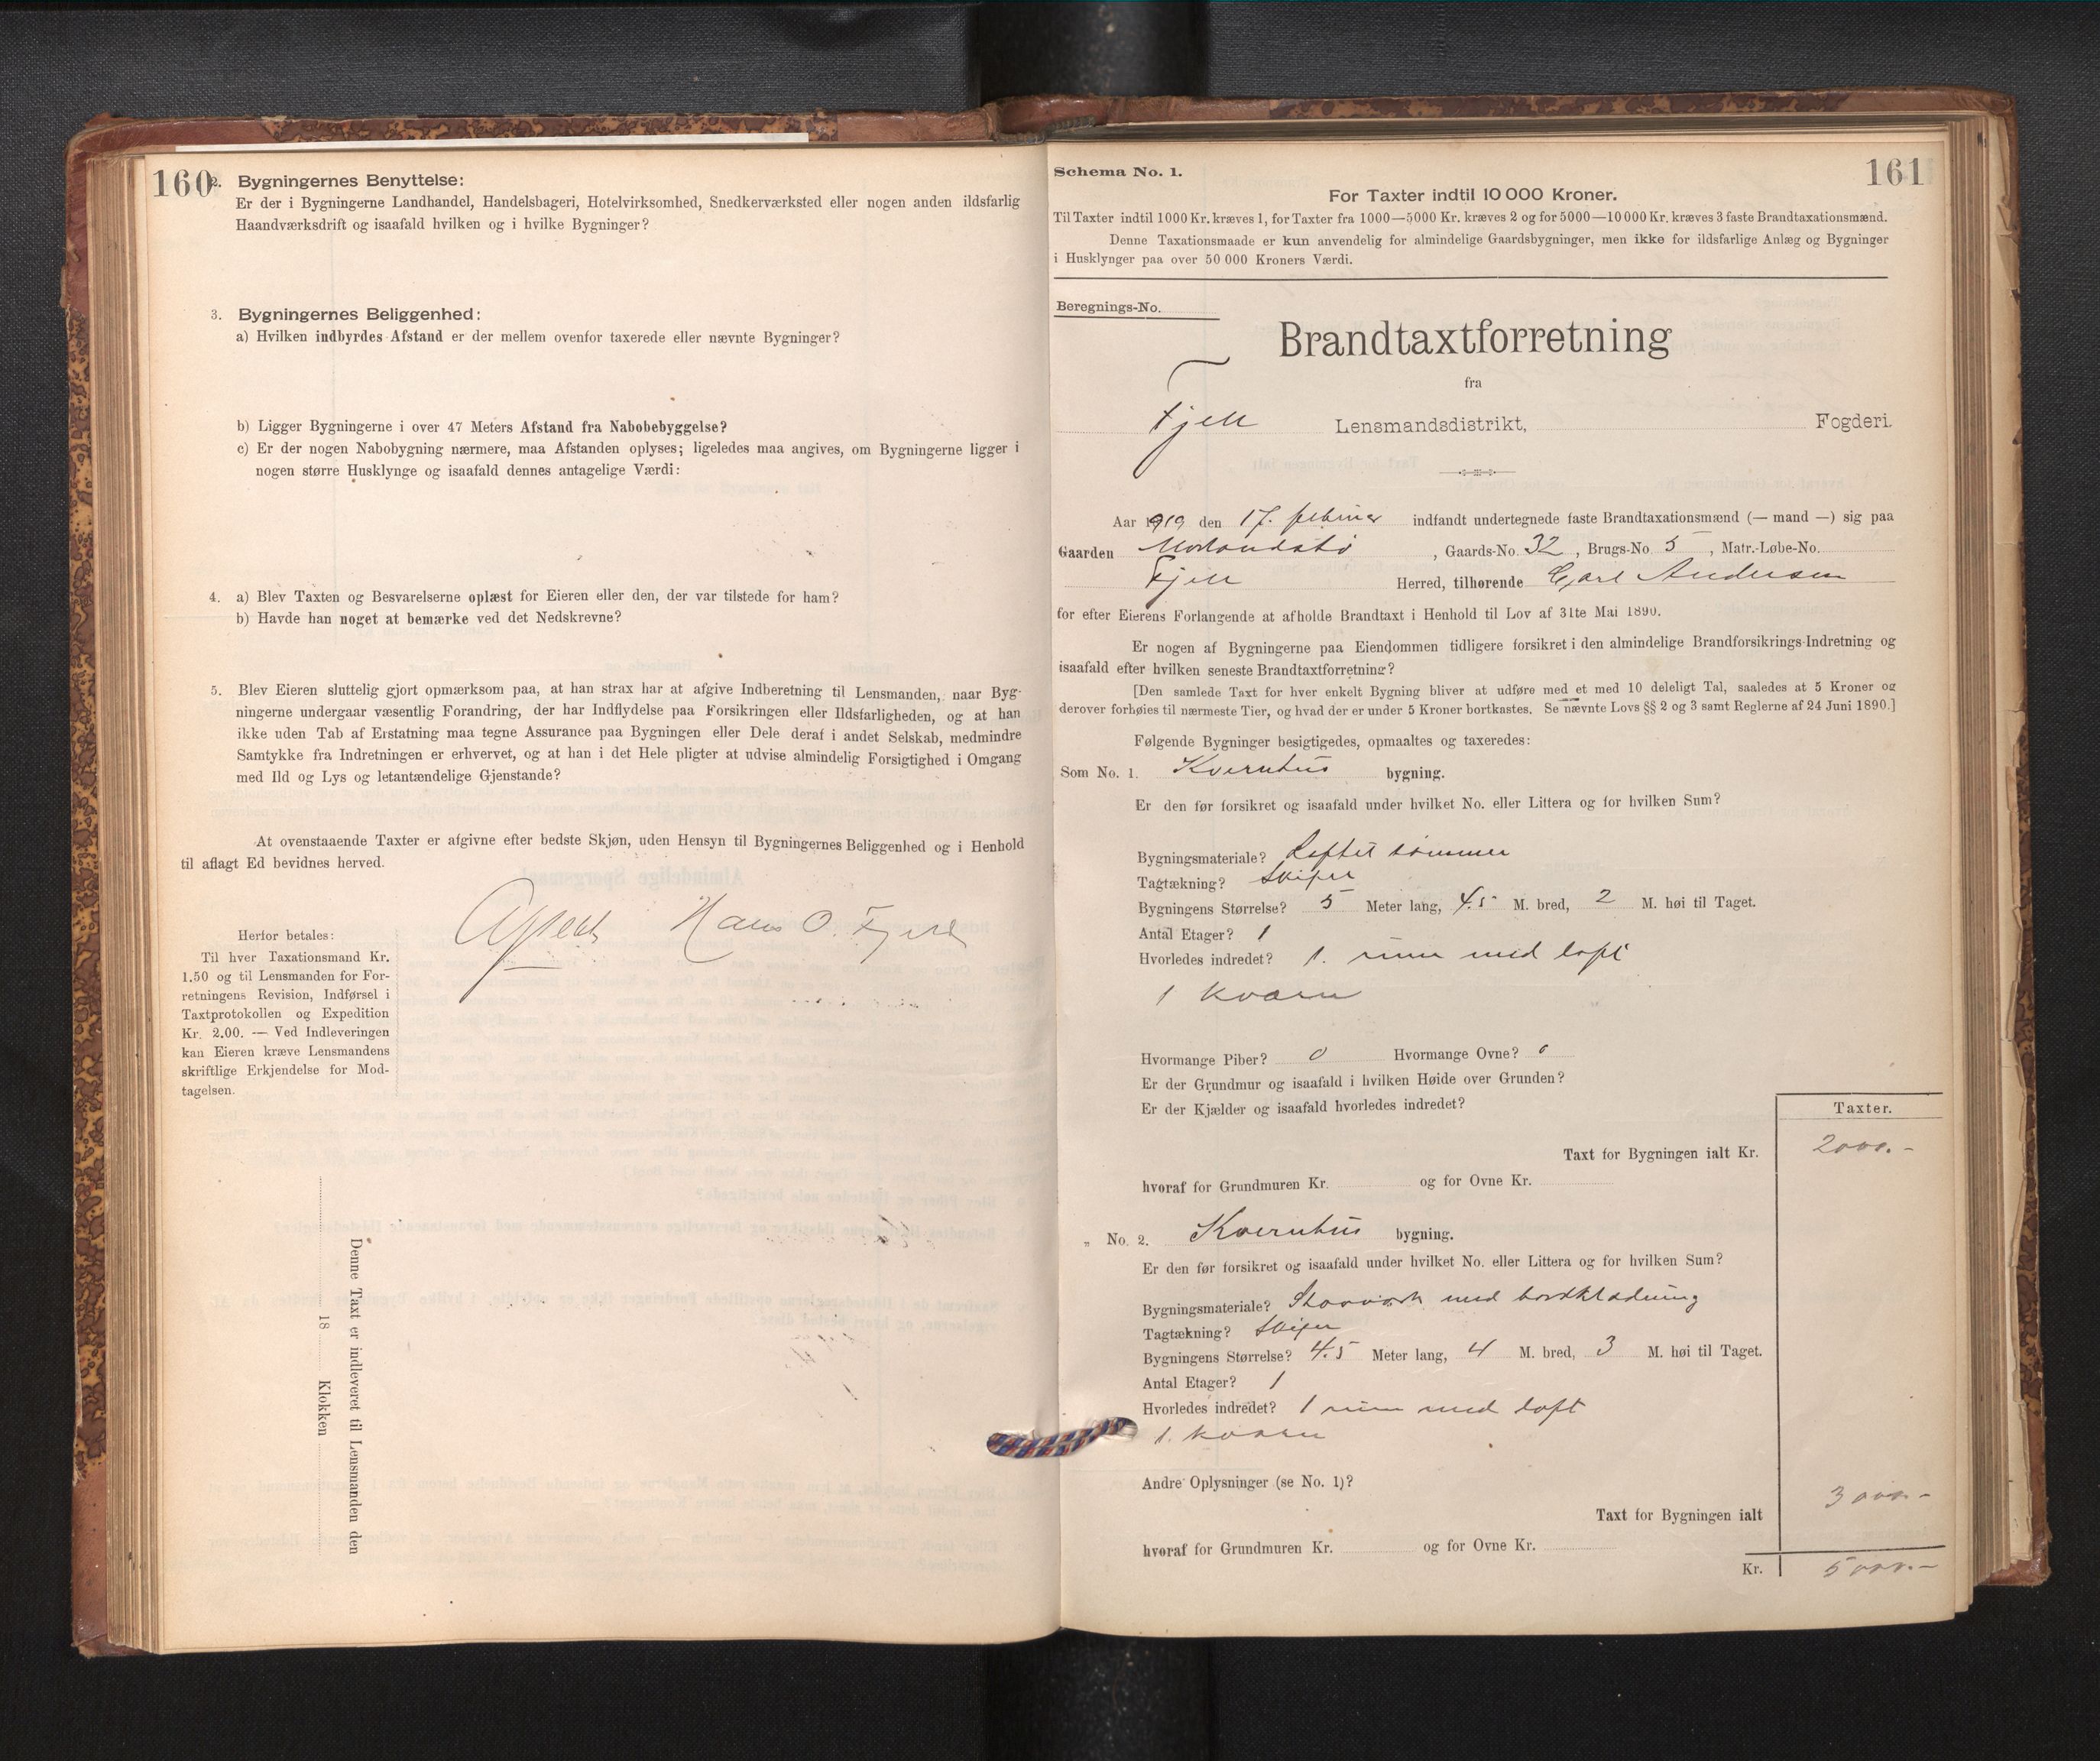 160
2. Bygningernes Benyttelse:
Er der i Bygningerne Landhandel, Handelsbageri, Hotelvirksomhed, Snedkerværksted eller nogen anden ildsfarlig
Haandværksdrift og isaafald hvilken og i hvilke Bygninger?
3. Bygningernes Beliggenhed:
a) Hvilken indbyrdes Afstand er der mellem ovenfor taxerede eller nævnte Bygninger?
b) Ligger Bygningerne i over 47 Meters Afstand fra Nabobebyggelse?
c) Er der nogen Nabobygning nærmere, maa Afstanden oplyses; ligeledes maa angives, om Bygningerne ligger i
nogen større Husklynge og isaafald dennes antagelige Værdi:
4. a) Blev Taxten og Besvarelserne oplæst for Eieren eller den, der var tilstede for ham?
b) Havde han noget at bemærke ved det Nedskrevne?
5. Blev Eieren sluttelig gjort opmærksom paa, at han strax har at afgive Indberetning til Lensmanden, naar Byg-
ningerne undergaar væsentlig Forandring, der har Indflydelse paa Forsikringen eller Ildsfarligheden, og at han
ikke uden Tab af Erstatning maa tegne Assurance paa Bygningen eller Dele deraf i andet Selskab, medmindre
Samtykke fra Indretningen er erhvervet, og at han i det Hele pligter at udvise almindelig Forsigtighed i Omgang
med Ild og Lys og letantændelige Gjenstande?
At ovenstaaende Taxter er afgivne efter bedste Skjøn, uden Hensyn til Bygningernes Beliggenhed og i Henhold
til aflagt Ed bevidnes herved.
Hans O. Fjeld
Herfor betales:
Til hver Taxationsmand Kr.
1.50 og til Lensmanden for For-
retningens Revision, Indførsel i
Taxtprotokollen og Expedition
Kr. 2.00. — Ved Indleveringen
kan Eieren kræve Lensmandens
skriftlige Erkjendelse for Mod-
tagelsen.
Denne Taxt er indleveret til Lensmanden den
18 Klokken
161
Schema No. 1.
For Taxter indtil 10 000 Kroner.
Til Taxter indtil 1000 Kr. kræves 1, for Taxter fra 1000—5000 Kr. kræves 2 og for 5000—10 000 Kr. kræves 3 faste Brandtaxationsmænd.
Denne Taxationsmaade er kun anvendelig for almindelige Gaardsbygninger, men ikke for ildsfarlige Anlæg og Bygninger
i Husklynger paa over 50 000 Kroners Værdi.
Beregnings-No.
Brandtaxtforretning
fra
Fjell Lensmandsdistrikt, Fogderi.
Aar 1919 den 17. februar indfandt undertegnede faste Brandtaxationsmænd (— mand —) sig paa
Gaarden Morlandstø, Gaards-No. 32, Brugs-No. 5, Matr.-Løbe-No.
Fjell Herred, tilhørende Carl Andersen
for efter Eierens Forlangende at afholde Brandtaxt i Henhold til Lov af 31te Mai 1890.
Er nogen af Bygningerne paa Eiendommen tidligere forsikret i den almindelige Brandforsikrings-Indretning og
isaafald efter hvilken seneste Brandtaxtforretning?
[Den samlede Taxt for hver enkelt Bygning bliver at udføre med et med 10 deleligt Tal, saaledes at 5 Kroner og
derover forhøies til nærmeste Tier, og hvad der er under 5 Kroner bortkastes. Se nævnte Lovs §§ 2 og 3 samt Reglerne af 24 Juni 1890.]
Følgende Bygninger besigtigedes, opmaaltes og taxeredes:
Som No. 1. Kvernhus bygning.
Er den før forsikret og isaafald under hvilket No. eller Littera og for hvilken Sum?
Bygningsmateriale? Laftet tømmer
Tagtækning? Skifer
Bygningens Størrelse? 5 Meter lang, 4.5 M. bred, 2 M. høi til Taget.
Antal Etager? 1
Hvorledes indredet? 1. rum med loft
1 kværn
Hvormange Piber? 0 Hvormange Ovne? 0
Er der Grundmur og isaafald i hvilken Høide over Grunden?
Er der Kjælder og isaafald hvorledes indredet?
Taxter.
Taxt for Bygningen ialt Kr. 2000.-
hvoraf for Grundmuren Kr. og for Ovne Kr.
„ No. 2. Kvernhus bygning.
Er den før forsikret og isaafald under hvilket No. eller Littera og for hvilken Sum?
Bygningsmateriale? Stavverk med bordklædning
Tagtækning? Skifer
Bygningens Størrelse? 4.5 Meter lang, 4 M. bred, 3 M. høi til Taget.
Antal Etager? 1
Hvorledes indredet? 1 rum med loft
1. kværn
Andre Oplysninger (se No. 1)?
Taxt for Bygningen ialt 3000.-
hvoraf for Grundmuren Kr. og for Ovne Kr.
Kr. 5000.-